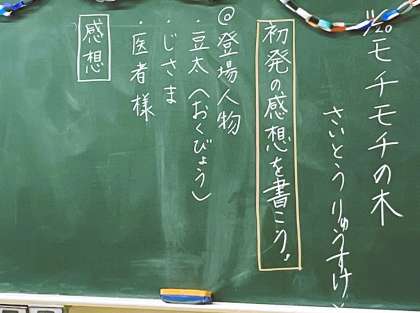 11/20
モチモチの木
さいとうりゅうすけ
初発の感想を書こう。
@登場人物
・豆太(おくびょう)
・じさま
・医者様
感想